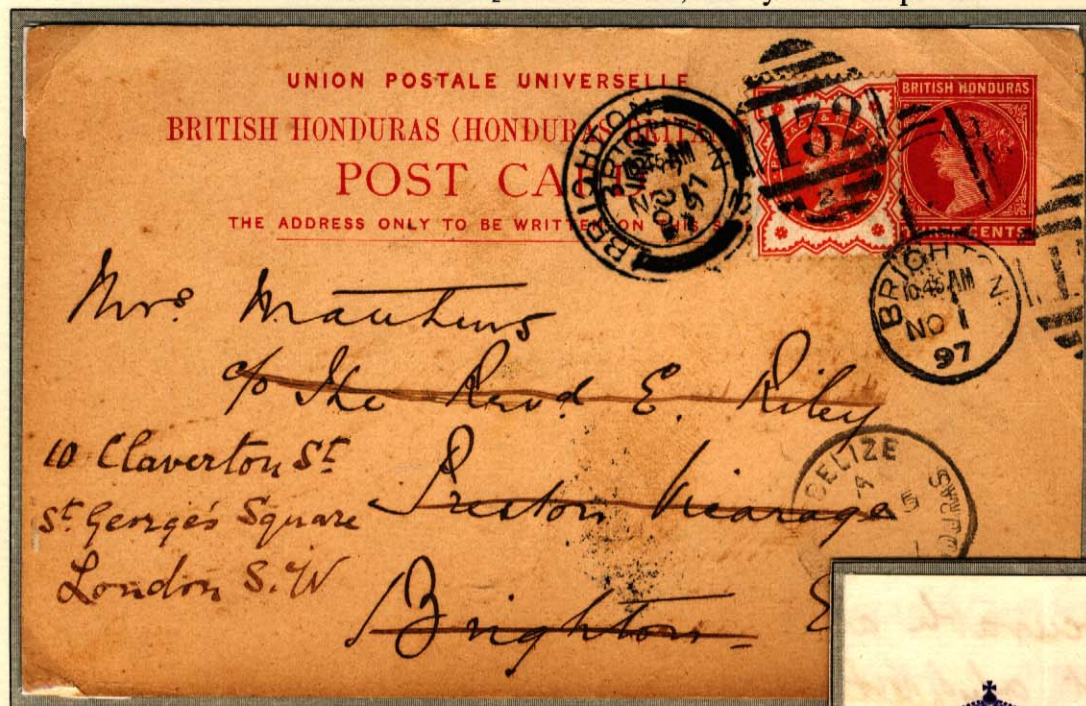 UNION POSTALE UNIVERSELLE
BRITISH HONDURAS (HONDURAS
POST CA
THE ADDRESS ONLY TO BE WRITTEN ON THIS S
BRITISH HONDURAS
THREE CENTS
BRIGHTON
132
BRIGHTON
10.45 AM
NO 1
97
Mrs. Matthews
c/o The Revd. E. Riley
Preston Vicarage
Brighton
10 Claverton St
St. George's Square
London S.W
BELIZE
A
5